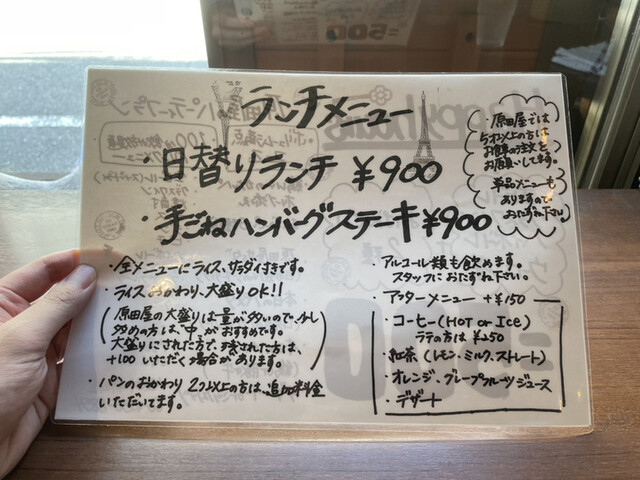 ランチメニュー
・日替りランチ ¥900
・手ごねハンバーグステーキ¥900
原田屋では
お食事の注文を
お願いします。
単品メニューも
ありますので
おたずね下さい
・全メニューにライス、サラダ付きです。
・ライスおかわり、大盛りOK!!
原田屋の大盛りは量が多いので、少し
多めの方は、"中"がおすすめです。
大盛りにされた方で、残された方は、
+100いただく場合があります。
・パンのおかわり2つ以上の方は、追加料金
いただいてます。
・アルコール類も飲めます。
スタッフにおたずね下さい。
・アフターメニュー +¥150
・コーヒー(HOT or Ice)
ラテの方は ¥250
・紅茶(レモン・ミルク、ストレート)
・オレンジ、グレープフルーツジュース
・デザート